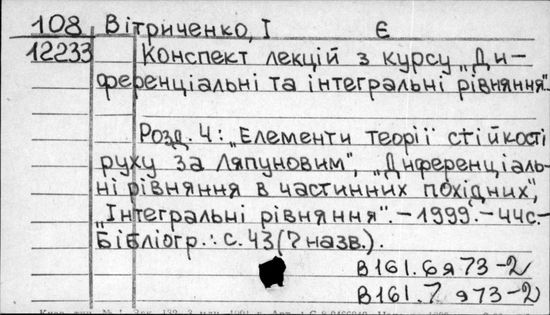 108 Вітриченко, І Є
12233 Конспект лекцій з курсу „Ди-
ференціальні та інтегральні рівняння".
Розд. 4: „Елементи теорії стійкості
руху за Ляпуновим", „Диференціаль-
ні рівняння в частинних похідних",
„Інтегральні рівняння". – 1999. – 44с. –
Бібліогр.: с. 43 (7 назв.).
В161.6я73-2
В161.7я73-2